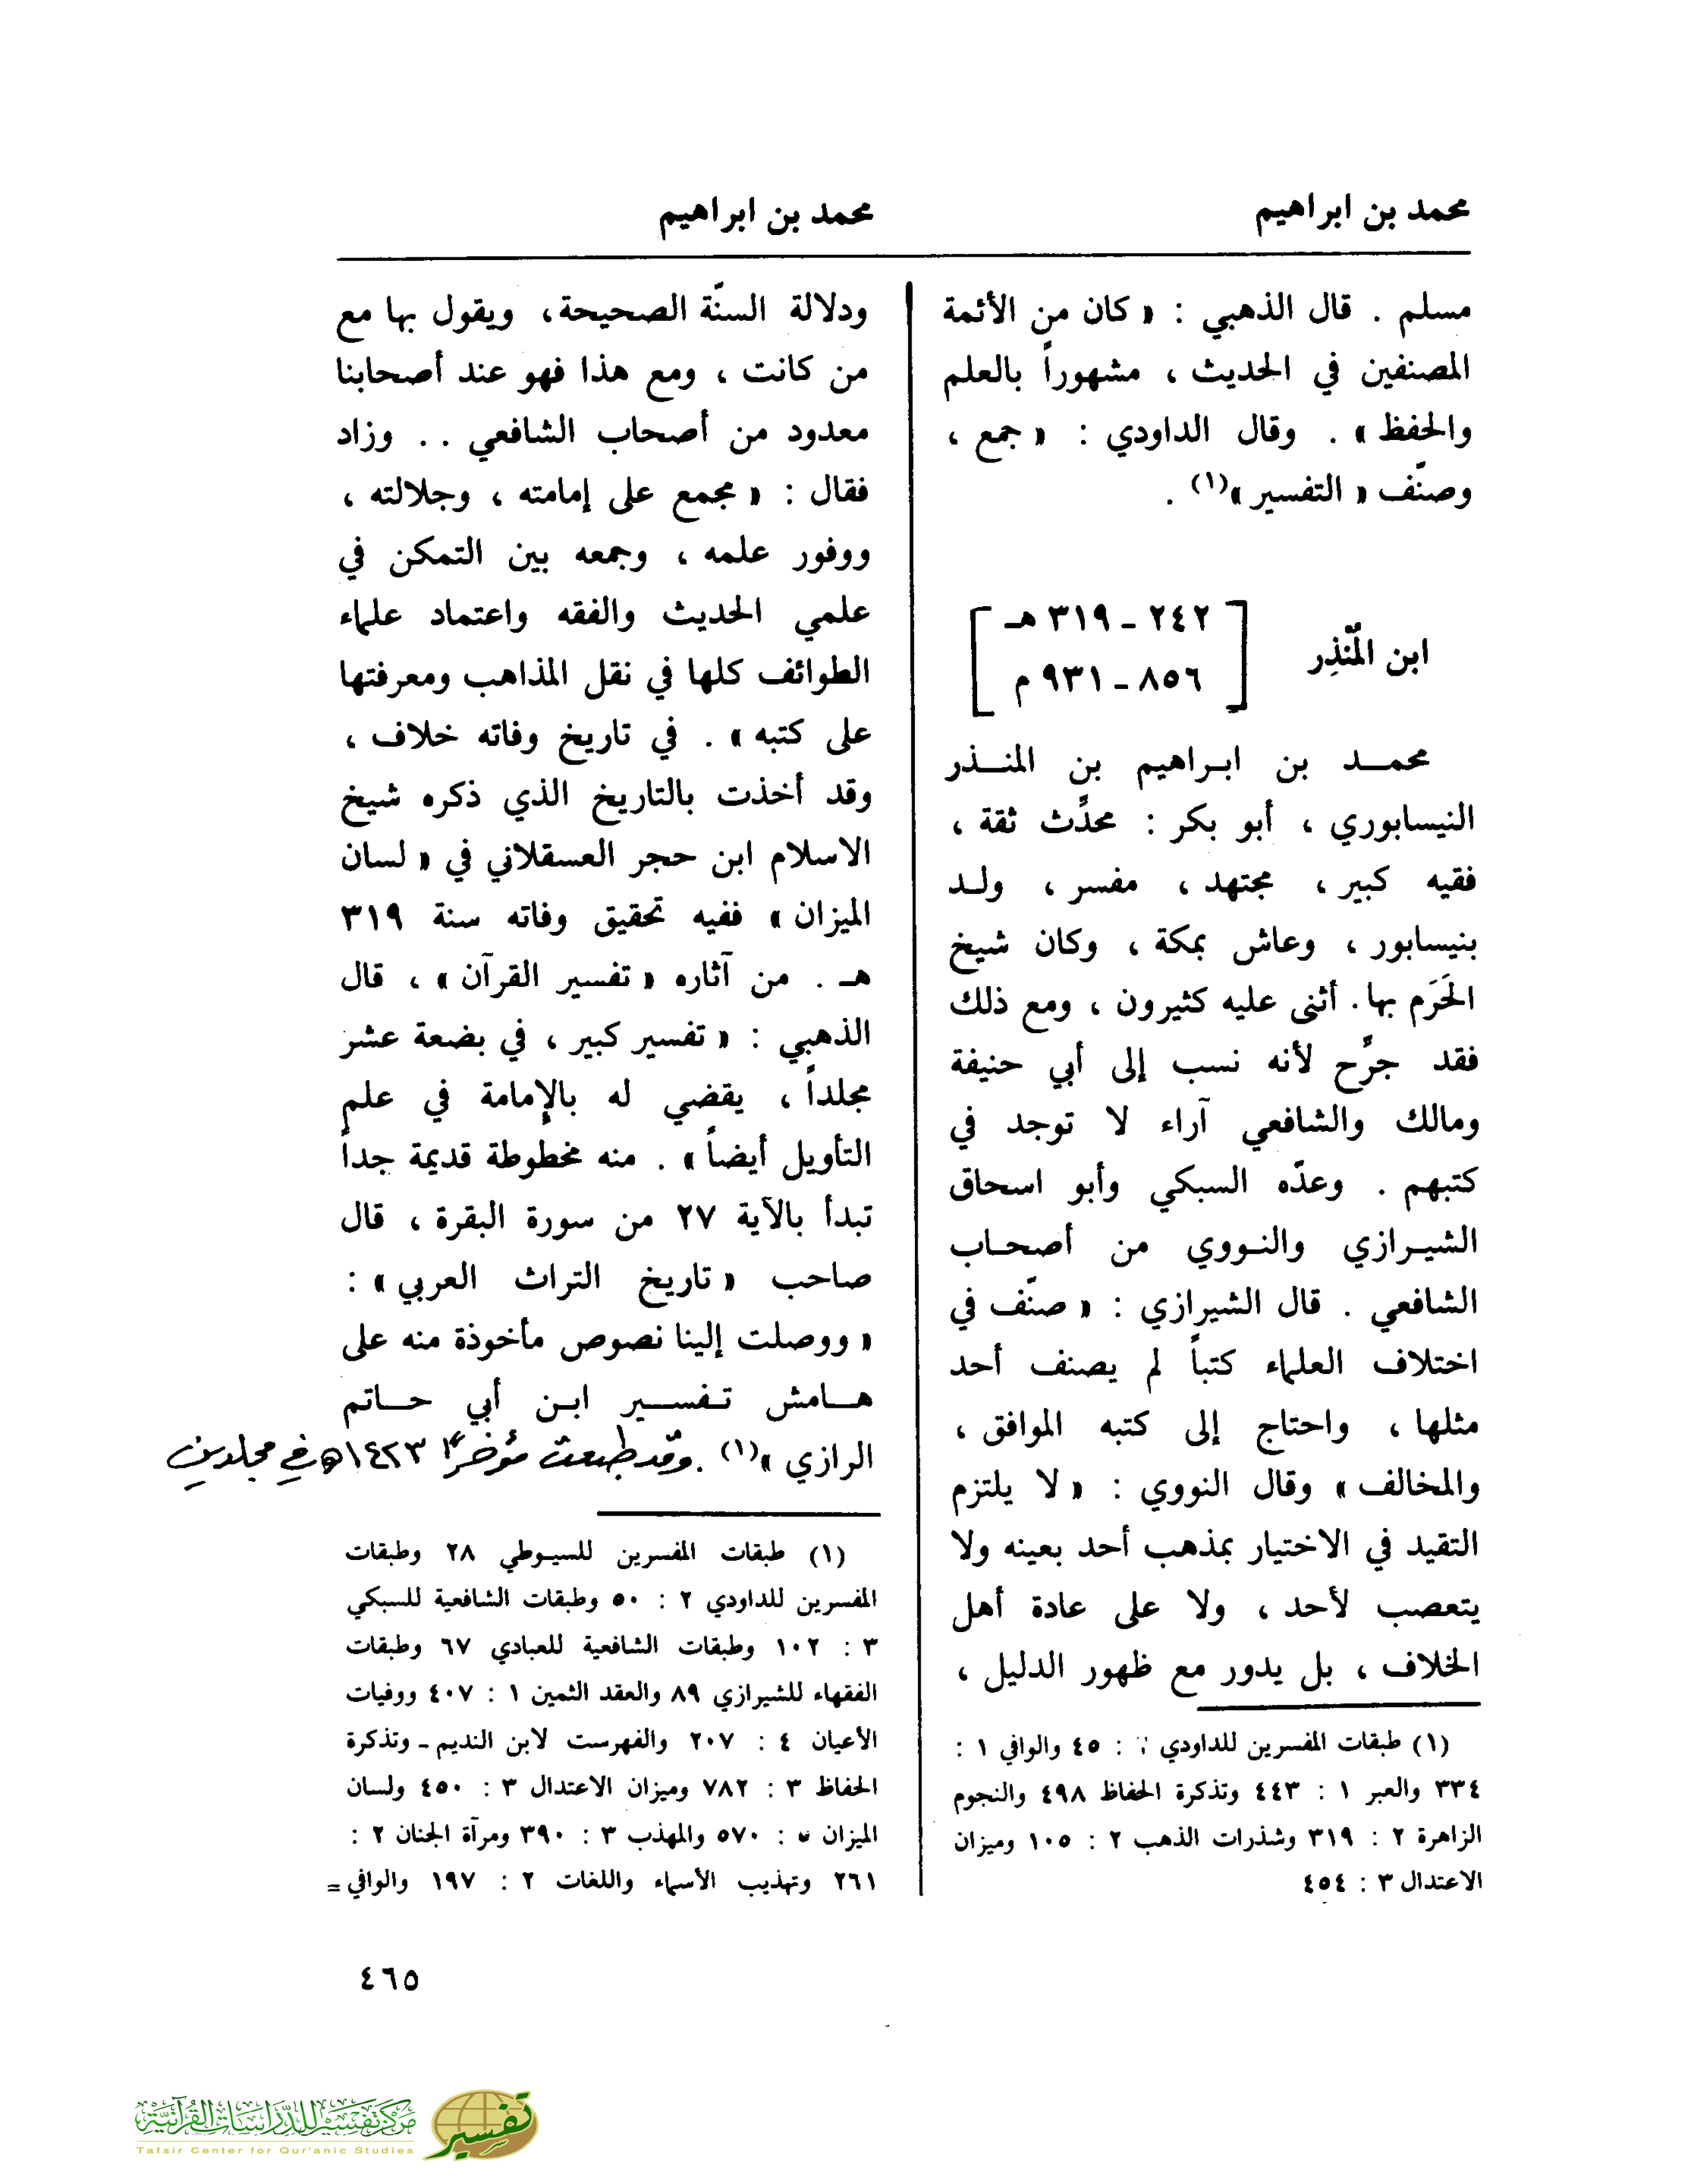 محمد بن ابراهيم
محمد بن ابراهيم
مسلم . قال الذهبي : « كان من الأئمة
المصنفين في الحديث ، مشهوراً بالعلم
والحفظ » . وقال الداودي : « جمع ،
وصنّف « التفسير »(١) .
ابن المُنْذِر
٢٤٢ - ٣١٩ هـ
٨٥٦ - ٩٣١ م
محمـــد بن ابـراهيم بن المنــذر
النيسابوري ، أبو بكر : محدِّث ثقة ،
فقيه كبير ، مجتهد ، مفسر ، ولـد
بنيسابور ، وعاش بمكة ، وكان شيخ
الحَرَم بها . أثنى عليه كثيرون ، ومع ذلك
فقد جرِّح لأنه نسب إلى أبي حنيفة
ومالك والشافعي آراء لا توجد في
كتبهم . وعدّه السبكي وأبو اسحاق
الشيـرازي والنـووي من أصحـاب
الشافعي . قال الشيرازي : « صنّف في
اختلاف العلماء كتباً لم يصنف أحد
مثلها ، واحتاج إلى كتبه الموافق ،
والمخالف » وقال النووي : « لا يلتزم
التقيد في الاختيار بمذهب أحد بعينه ولا
يتعصب لأحد ، ولا على عادة أهل
الخلاف ، بل يدور مع ظهور الدليل ،
(١) طبقات المفسرين للداودي : ٤٥ والوافي ١ :
٣٣٤ والعبر ١ : ٤٤٣ وتذكرة الحفاظ ٤٩٨ والنجوم
الزاهرة ٢ : ٣١٩ وشذرات الذهب ٢ : ١٠٥ وميزان
الاعتدال ٣ : ٤٥٤
ودلالة السنّة الصحيحة ، ويقول بها مع
من كانت ، ومع هذا فهو عند أصحابنا
معدود من أصحاب الشافعي . . وزاد
فقال : « مجمع على إمامته ، وجلالته ،
ووفور علمه ، وجمعه بين التمكن في
علمي الحديث والفقه واعتماد علماء
الطوائف كلها في نقل المذاهب ومعرفتها
على كتبه » . في تاريخ وفاته خلاف ،
وقد أخذت بالتاريخ الذي ذكره شيخ
الاسلام ابن حجر العسقلاني في « لسان
الميزان » ففيه تحقيق وفاته سنة ٣١٩
هـ . من آثاره « تفسير القرآن » ، قال
الذهبي : « تفسير كبير ، في بضعة عشر
مجلداً ، يقضي له بالإمامة في علم
التأويل أيضاً » . منه مخطوطة قديمة جداً
تبدأ بالآية ٢٧ من سورة البقرة ، قال
صاحب « تاريخ التراث العربي » :
« ووصلت إلينا نصوص مأخوذة منه على
هـــامش تـفـســـير ابـن أبي حـــاتم
الرازي »(١) . وقد طبعت مؤخراً ١٤٢٣ه في مجلدين
(١) طبقات المفسرين للسيـوطي ٢٨ وطبقات
المفسرين للداودي ٢ : ٥٠ وطبقات الشافعية للسبكي
٣ : ١٠٢ وطبقات الشافعية للعبادي ٦٧ وطبقات
الفقهاء للشيرازي ٨٩ والعقد الثمين ١ : ٤٠٧ ووفيات
الأعيان ٤ : ٢٠٧ والفهرست لابن النديم - وتذكرة
الحفاظ ٣ : ٧٨٢ وميزان الاعتدال ٣ : ٤٥٠ ولسان
الميزان ٥ : ٥٧٠ والمهذب ٣ : ٣٩٠ ومرآة الجنان ٢ :
٢٦١ وتهذيب الأسماء واللغات ٢ : ١٩٧ والوافي =
٤٦٥
مركز تفسير للدراسات القرآنية
Tafsir Center for Qur'anic Studies
تفسير